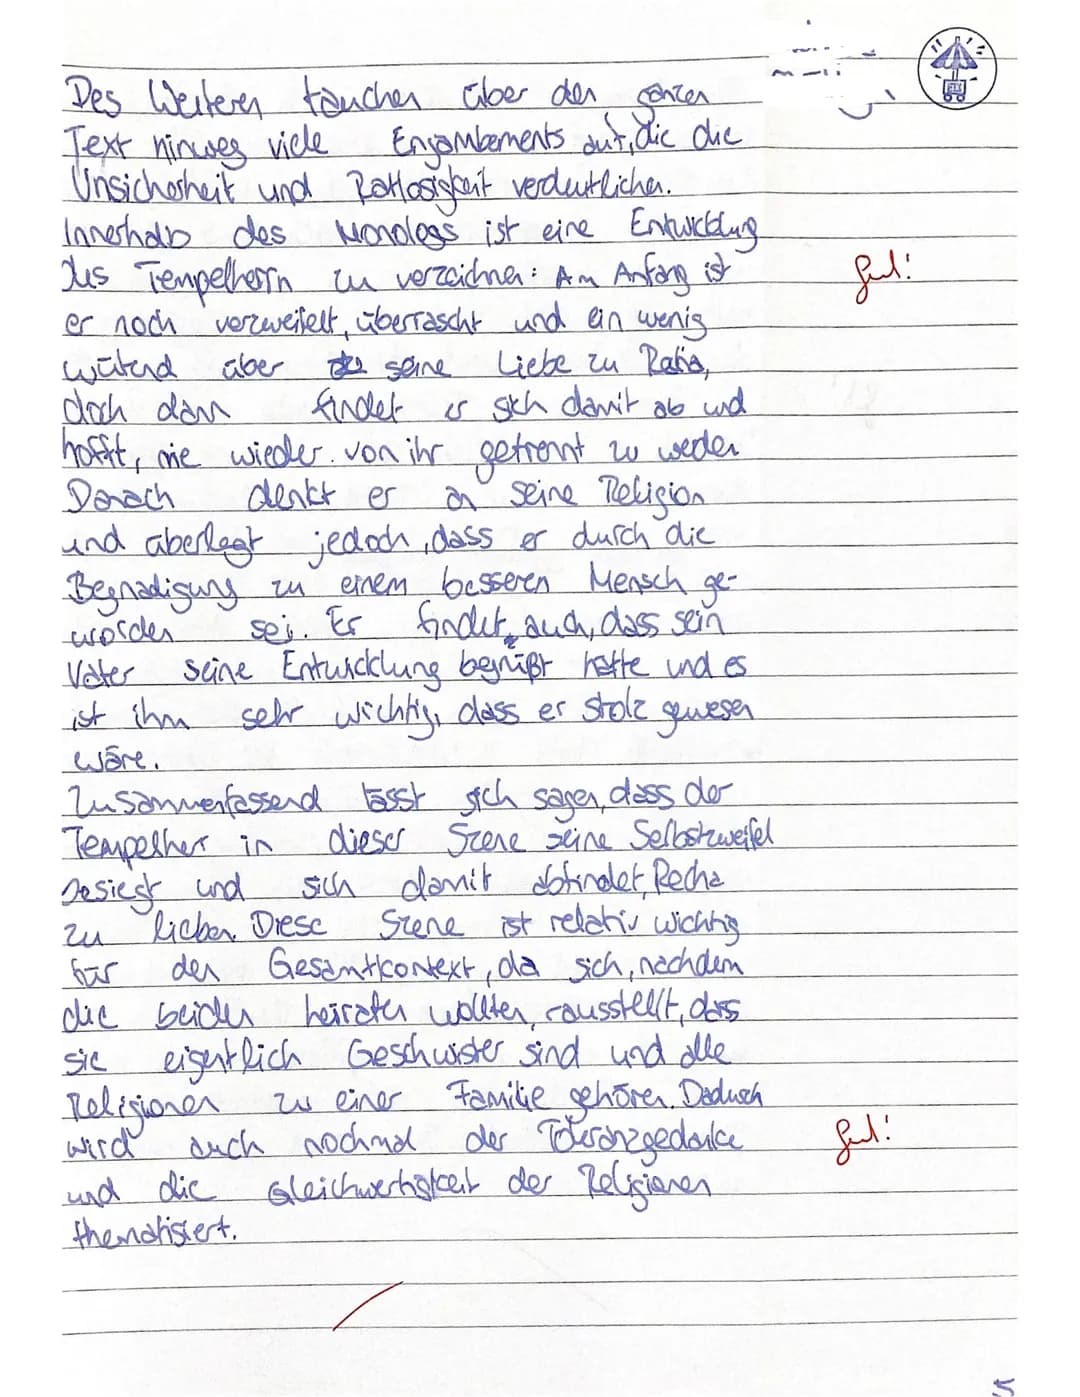 Des Weiteren tauchen über den ganzen
Text hinweg viele Enjambements auf, die die
Unsicherheit und Ratlosigkeit verdeutlichen.
Innerhalb des Monologs ist eine Entwicklung
des Tempelherrn zu verzeichnen: Am Anfang ist
gut!
er noch verzweifelt, überrascht und ein wenig
wütend über seine Liebe zu Raha,
doch dann findet er sich damit ab und
hofft, nie wieder von ihr getrennt zu werden
Danach denkt er an seine Religion
und überlegt jedoch, dass er durch die
Begnadigung zu einem besseren Mensch ge-
worden sei. Er findet auch, dass sein
Vater seine Entwicklung begrüßt hätte und es
ist ihm sehr wichtig, dass er stolz gewesen
wäre.
Zusammenfassend lässt sich sagen, dass der
Tempelher in dieser Szene seine Selbstzweifel
besiegt und sich damit abfindet, Recha
zu lieben. Diese Szene ist relativ wichtig
für den Gesamtkontext, da sich, nachdem
die beiden heiraten wollten, rausstellt, dass
sie eigentlich Geschwister sind und alle
Religionen zu einer Familie gehören. Daduch
wird auch nochmal der Toleranzgedanke
gut!
und die Gleichwertigkeit der Religionen
thematisiert.
5